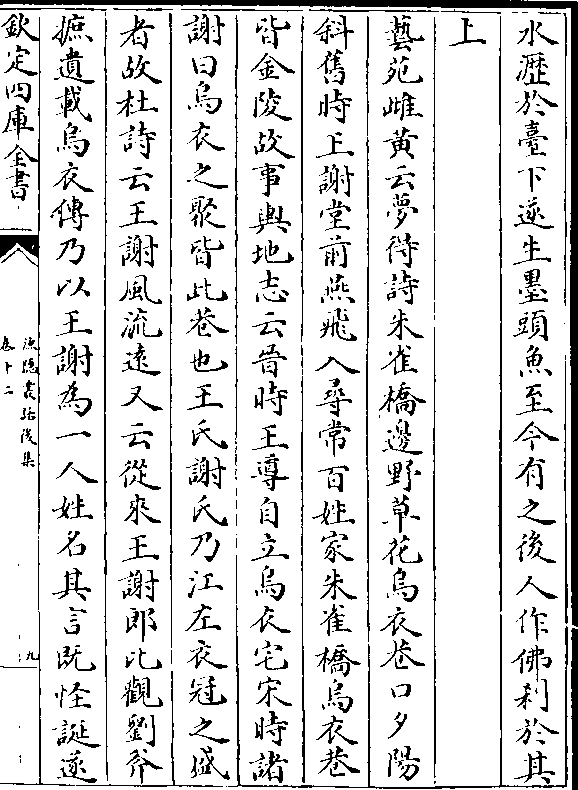 水瀝於臺下遂生墨頭魚至今有之後人作佛刹於其
上
藝苑雌黃云夢得詩朱雀橋邊野草花烏衣巷口夕陽
斜舊時王謝堂前燕飛入尋常百姓家朱雀橋烏衣巷
皆金陵故事輿地志云晉時王導自立烏衣宅宋時諸
謝曰烏衣之聚皆此巷也王氏謝氏乃江左衣冠之盛
者故杜詩云王謝風流遠又云從來王謝郎比觀劉斧
摭遺載烏衣傳乃以王謝為一人姓名其言既怪誕遂
欽定四庫全書
漁隱叢話後集
卷十二
九